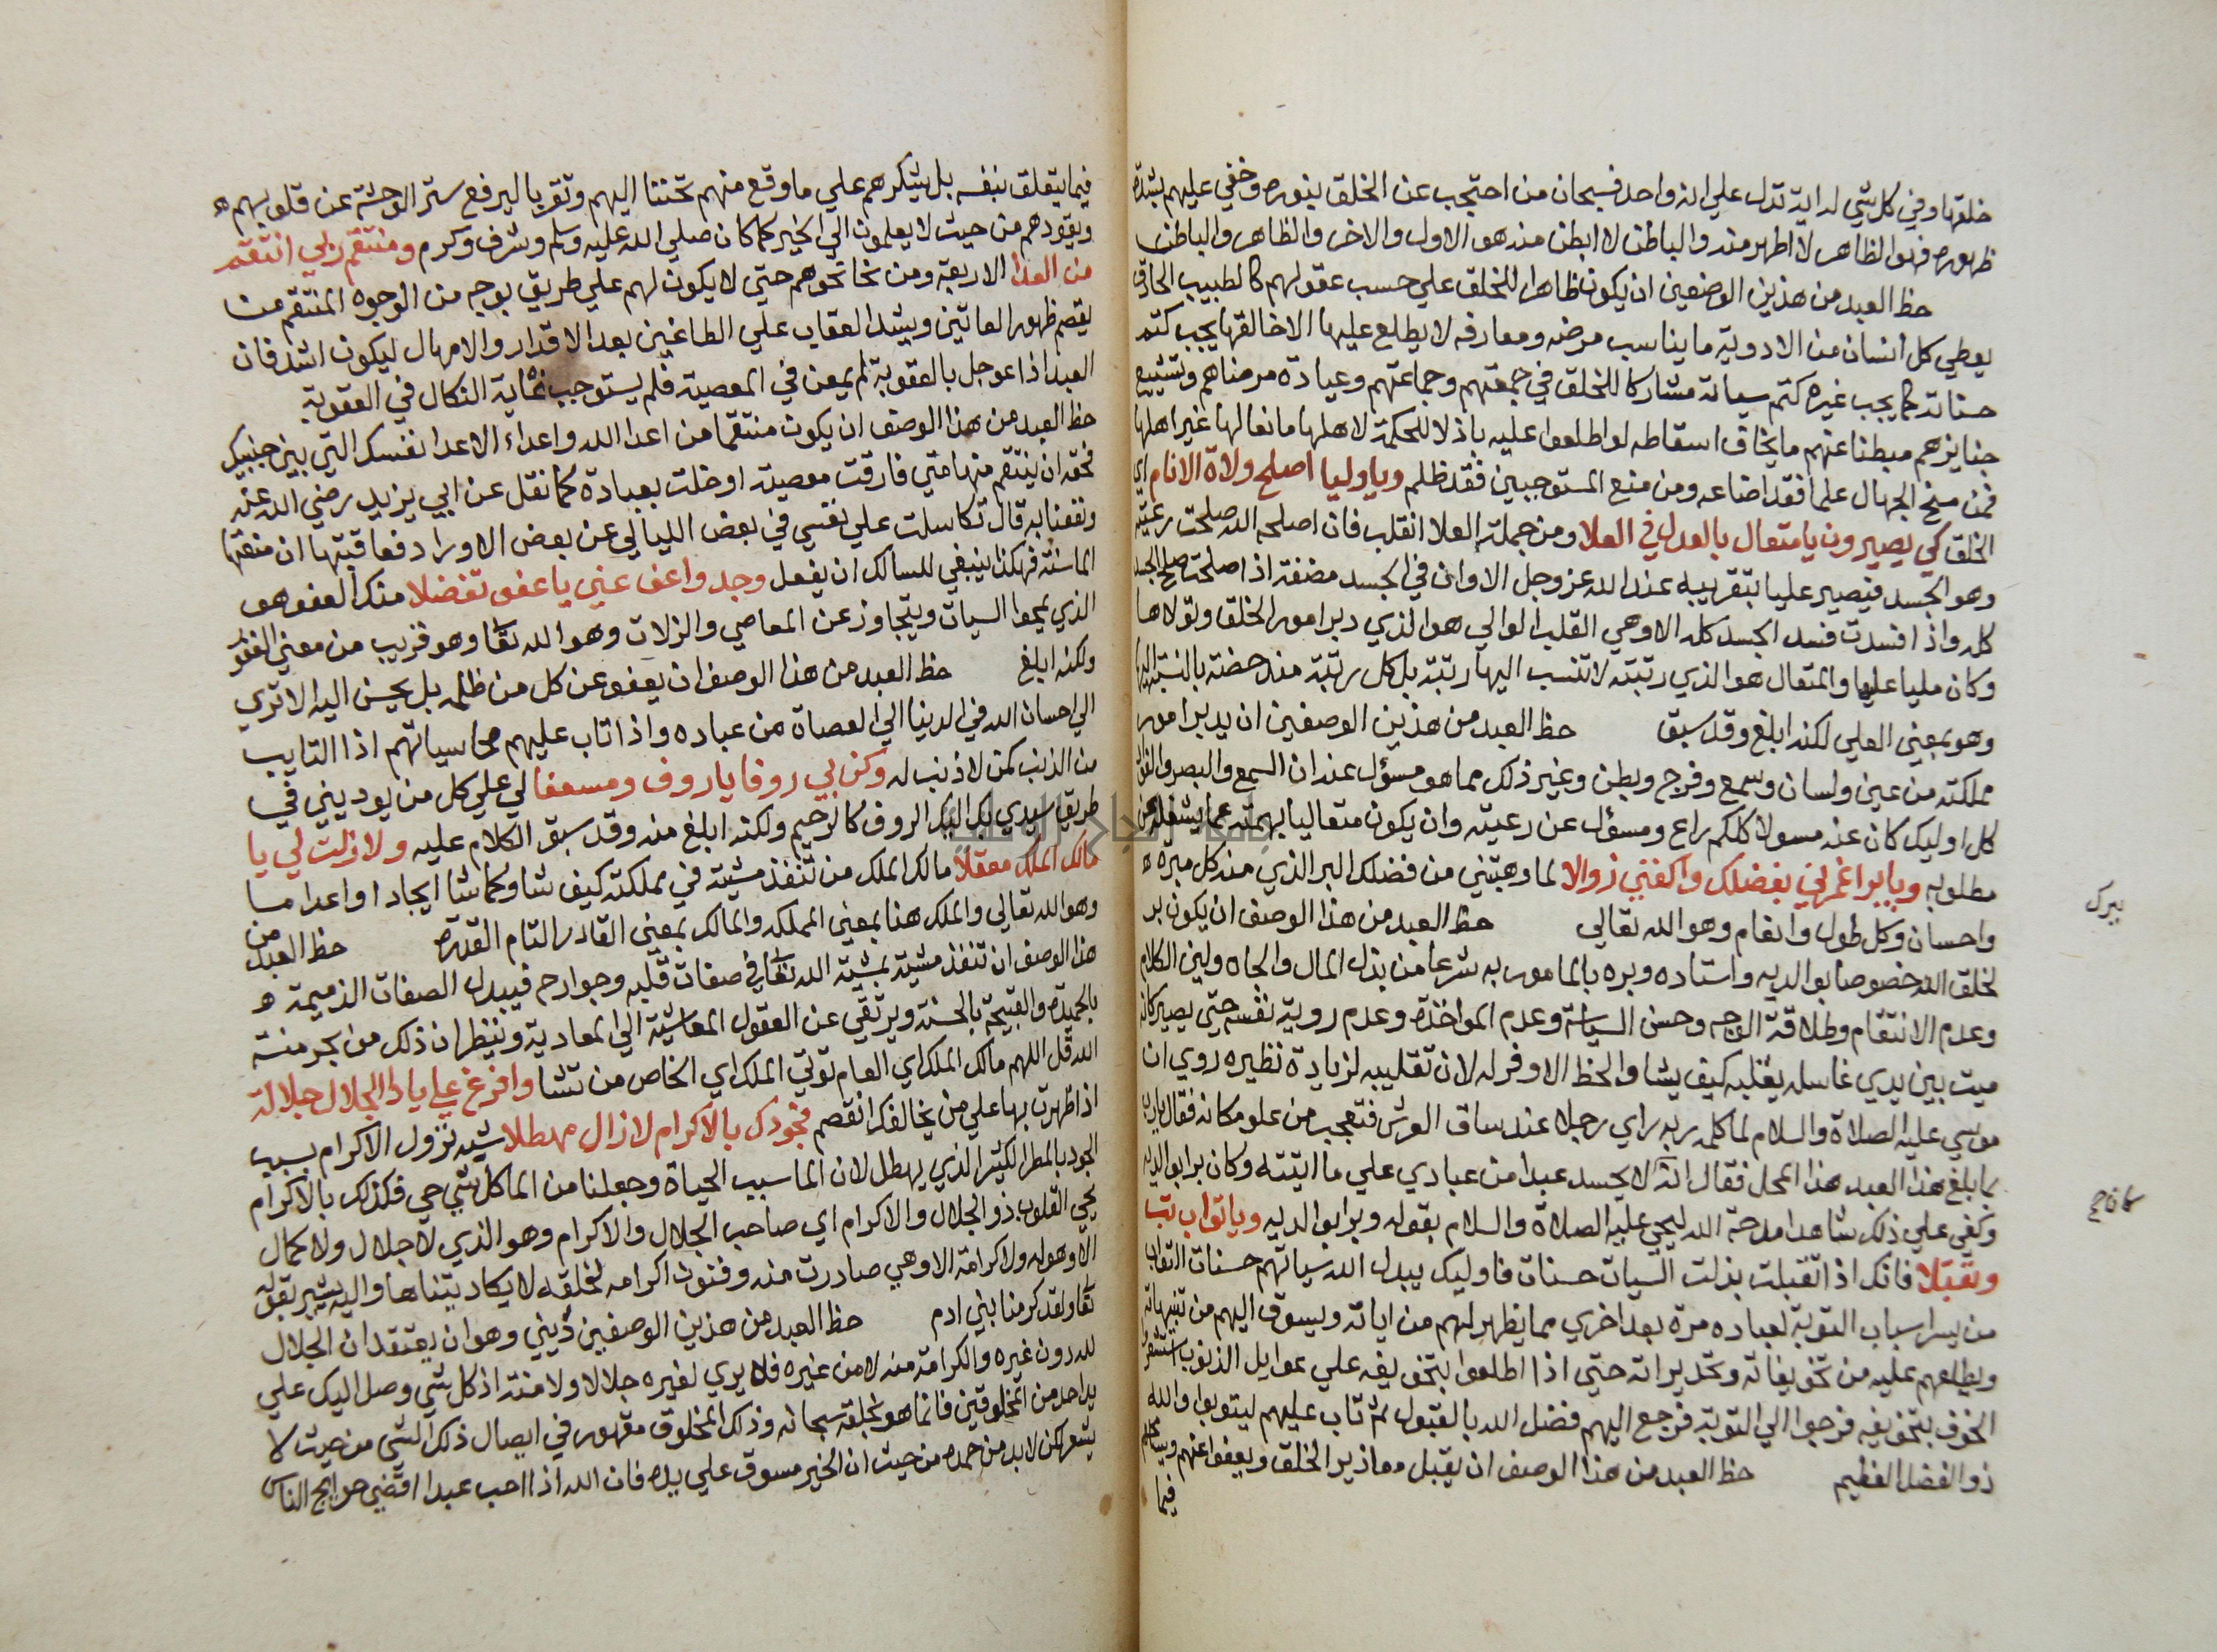 خلقها وفي كل شي له اية تدل علي انه واحد فسبحان من احتجب عن الخلق بنوره وخفي عليهم بشدة
ظهوره فهو الظاهر لا اظهر منه والباطن لا ابطن منه هو الاول والاخر والظاهر والباطن
حظ العبد من هذين الوصفين ان يكون ظاهرا للخلق علي حسب عقولهم كالطبيب الحاذق
يعطي كل انسان من الادوية ما يناسب مرضه ومعارفه لا يطلع عليها الا خالقها يحب كتم
حسناته كما يحب غيره كتم سياته مشاركا للخلق في جمعتهم وجماعتهم وعيادة مرضاهم وتشييع
جنايزهم مبطنا عنهم ما يخاف اسقاطه لو اطلعوا عليه باذلا للحكمة لاهلها مانعا لها غير اهلها
فمن منح الجهال علما فقد اضاعه ومن منع المستوجبين فقد ظلم ويا وليا اصلح ولاة الانام اي
الخلق كي يصيرون يا متعال بالعدل في العلا ومن جملة العلا القلب فان اصلحه الله صلحت رعيته
وهو الجسد فيصير عليا بتقريبه عند الله عز وجل الا وان في الجسد مضغة اذا صلحت صلح الجسد
كله واذا فسدت فسد الجسد كله الا وهي القلب الوالي هو الذي دبر امور الخلق وتولاها
وكان مليا عليها والمتعال هو الذي رتبته لا تنسب اليها رتبة بل كل رتبة منحضضة بالنسبة اليها
وهو بمعني العلي لكنه ابلغ وقد سبق حظ العبد من هذين الوصفين ان يدبر امور
مملكته من عين ولسان وسمع وفرج وبطن وغير ذلك مما هو مسؤل عنه ان السمع والبصر والفواد
كل اوليك كان عنه مسولا كلكم راع ومسؤل عن رعيته وان يكون متعاليا بهمته عما يشغله عن
مطلوبه ويا بر اغمرني بفضلك واكفني زوالا لما وهبتني من فضلك البر الذي منه كل مبرة
واحسان وكل طول وانعام وهو الله تعالي حظ العبد من هذا الوصف ان يكون بر
لخلق الله خصوصا بوالديه واستاده وبره بالمامور به شرعا من بذل المال والجاه ولين الكلام
وعدم الانتقام وطلاقة الوجه وحسن السياسة وعدم المواخذة وعدم روية نفسه حتي يصير كانه
ميت بين يدي غاسله يقلبه كيف يشا والحظ الاوفر له لان تقليبه لزيادة نظيره روي ان
موسي عليه الصلاة والسلام لما كلمه ربه راي رجلا عند ساق العرش فتعجب من علو مكانه فقال يارب
بما بلغ هذا العبد هذا المحل فقال انه لا يحسد عبدا من عبادي علي ما اتيته وكان برا بوالديه
وكفي علي ذلك شاهدا مدحة الله ليحيي عليه الصلاة والسلام بقوله وبرا بوالديه ويا تواب تب
وتقبلا فانك اذا تقبلت بذلت السيات حسنات فاوليك يبدل الله سياتهم حسنات التواب
من يسر اسباب التوبة لعباده مرة بعد اخري مما يظهر لهم من اياته ويسوق اليهم من تنبيهاته
ويطلعهم عليه من تخويفاته وتحذيراته حتي اذا اطلعوا بتخويفه علي عوايل الذنوب استشعروا
الخوف بتخويفه فرجعوا الي التوبة فرجع اليهم فضل الله بالقبول ثم تاب عليهم ليتوبوا والله
ذو الفضل العظيم حظ العبد من هذا الوصف ان يقبل معاذير الخلق ويعفوا عنهم ويسامحهم
فيما
فيما يتعلق بنفسه بل يشكرهم علي ما وقع منهم تحننا اليهم وتقربا ليرفع ستر الوحشة عن قلوبهم
ويقودهم من حيث لا يعلمون الي الخير كما كان صلي الله عليه وسلم وشرف وكرم ومنتقم ربي انتقم
من العدا الاربعة ومن نحا نحوهم حتي لا يكون لهم علي طريق بوجه من الوجوه المنتقم من
يقصم ظهور العاتين ويشد العقاب علي الطاغين بعد الاقدار والامهال ليكون اشد فان
العبد اذا عوجل بالعقوبة لم يمعن في المعصية فلم يستوجب نهاية النكال في العقوبة
حظ العبد من هذا الوصف ان يكون منتقما من اعدا الله واعداء الاعدا نفسك التي بين جنبيك
فحقه ان ينتقم منها متي قارفت معصية او خلت بعبادة كما نقل عن ابي يزيد رضي الله عنه
ونفعنا به قال تكاسلت علي نفسي في بعض الليالي عن بعض الاوراد فعاقبتها ان منعتها
الما سنة فهكذا ينبغي للسالك ان يفعل وجد واعف عني يا عفو تفضلا منك العفو هو
الذي يمحوا السيات ويتجاوز عن المعاصي والزلات وهو الله تعا وهو قريب من معني الغفور
ولكنه ابلغ حظ العبد من هذا الوصف ان يعفو عن كل من ظلمه بل يحسن اليه الا تري
الي احسان الله في الدنيا الي العصاة من عباده واذا تاب عليهم محا سياتهم اذا التايب
من الذنب كمن لا ذنب له وكن بي روفا يا روف ومسعفا لي علي كل من يوديني في
طريق سيدي لك اليك الروف كالرحيم ولكنه ابلغ منه وقد سبق الكلام عليه ولا زلت لي يا
مالك الملك معقلا مالك الملك من تنفذ مشيته في مملكته كيف شا وكما شا ايجادا واعداما
وهو الله تعالي والملك هنا بمعني المملكه والمالك بمعني القادر التام القدرة حظ العبد من
هذا الوصف ان تنفذ مشيته بمشية الله تعا في صفات قلبه وجوارحه فيبدل الصفات الذميمة
بالحميدة والقبيحة بالحسنة ويرتقي عن العقول المعاشية الي المعادية وينظر ان ذلك من بحر منته
الله قل اللهم مالك الملك اي العام توتي الملك اي الخاص من تشا وافرغ علي يا ذا الجلال جلالة
اذا ظهرت بها علي من يخالفك انقصم فجودك بالاكرام لا زال مهطلا شبه نزول الاكرام بسبب
الجود بالمطر الكثير الذي يهطل لان الما سبب الحياة وجعلنا من الما كل شي حي فكذلك بالاكرام
يحي القلوب ذو الجلال والاكرام اي صاحب الجلال والاكرام وهو الذي لا جلال ولا كمال
الا وهو له ولا كرامة الا وهي صادرت منه وفنون اكرامه لخلقه لا يكاد يتناها واليه يشير بقوله
تعا ولقد كرمنا بني ادم حظ العبد من هذين الوصفين ديني وهو ان يعتقد ان الجلال
لله دون غيره والكرامة منه لا من غيره فلا يري لغيره جلالا ولا منة اذ كل شي وصل اليك علي
يد احد من المخلوقين فانما هو بخلقه سبحانه وذلك المخلوق مقهور في ايصال ذلك الشي من حيث لا
يشعر لكن لا بد من حمده من حيث ان الخير مسوق علي يده فان الله اذا احب عبدا اقضي حوايج الناس